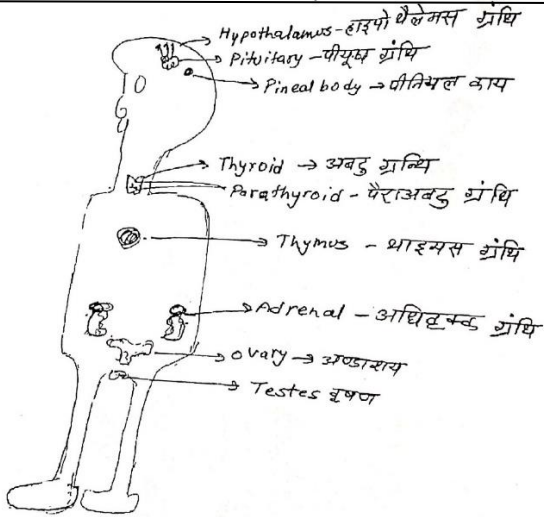 Hypothalamus-हाइपोथैलेमस ग्रंथि
Pituitary - पीयूष ग्रंथि
Pineal body → पीनियल काय
Thyroid → अवटु ग्रन्थि
Parathyroid - पैराअवटु ग्रंथि
Thymus - थाइमस ग्रंथि
Adrenal - अधिवृक्क ग्रंथि
Ovary → अण्डाशय
Testes वृषण